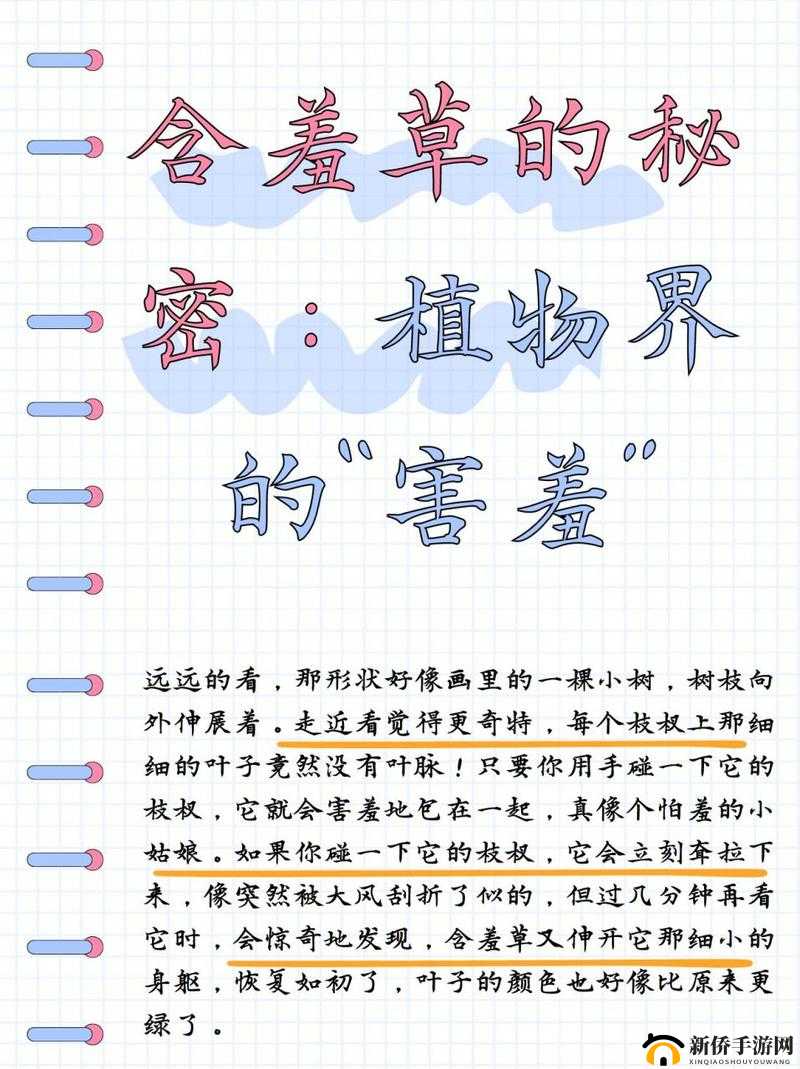 含羞草的秘
密：植物界
的“害羞”
远远的看，那形状好像画里的一棵小树，树枝向
外伸展着。走近看觉得更奇特，每个枝杈上那细
细的叶子竟然没有叶脉！只要你用手碰一下它的
枝杈，它就会害羞地包在一起，真像个怕羞的小
姑娘。如果你碰一下它的枝杈，它会立刻耷拉下
来，像突然被大风刮折了似的，但过几分钟再看
它时，会惊奇地发现，含羞草又伸开它那细小的
身躯，恢复如初了，叶子的颜色也好像比原来更
绿了。
新侨手游网
XINQIAOSHOUYOUWANG